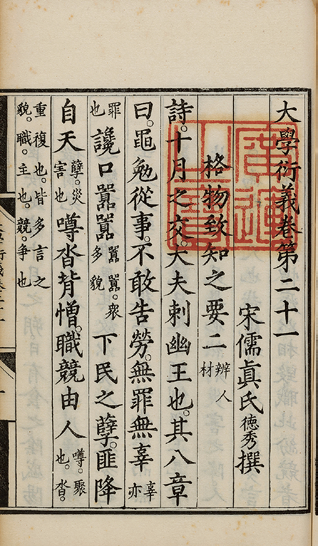 大學衍義卷第二十一
宋儒眞氏德秀撰
格物致知之要二 辨人材
詩。十月之交。大夫刺幽王也。其八章
曰。黽勉從事。不敢告勞。無罪無辜。辜亦
罪也讒口囂囂。囂囂。衆多貌下民之孽。匪降
自天。孽。災害也噂沓背憎。職競由人。噂。聚也。沓。
重復也。皆多言之貌。職。主也。競。爭也